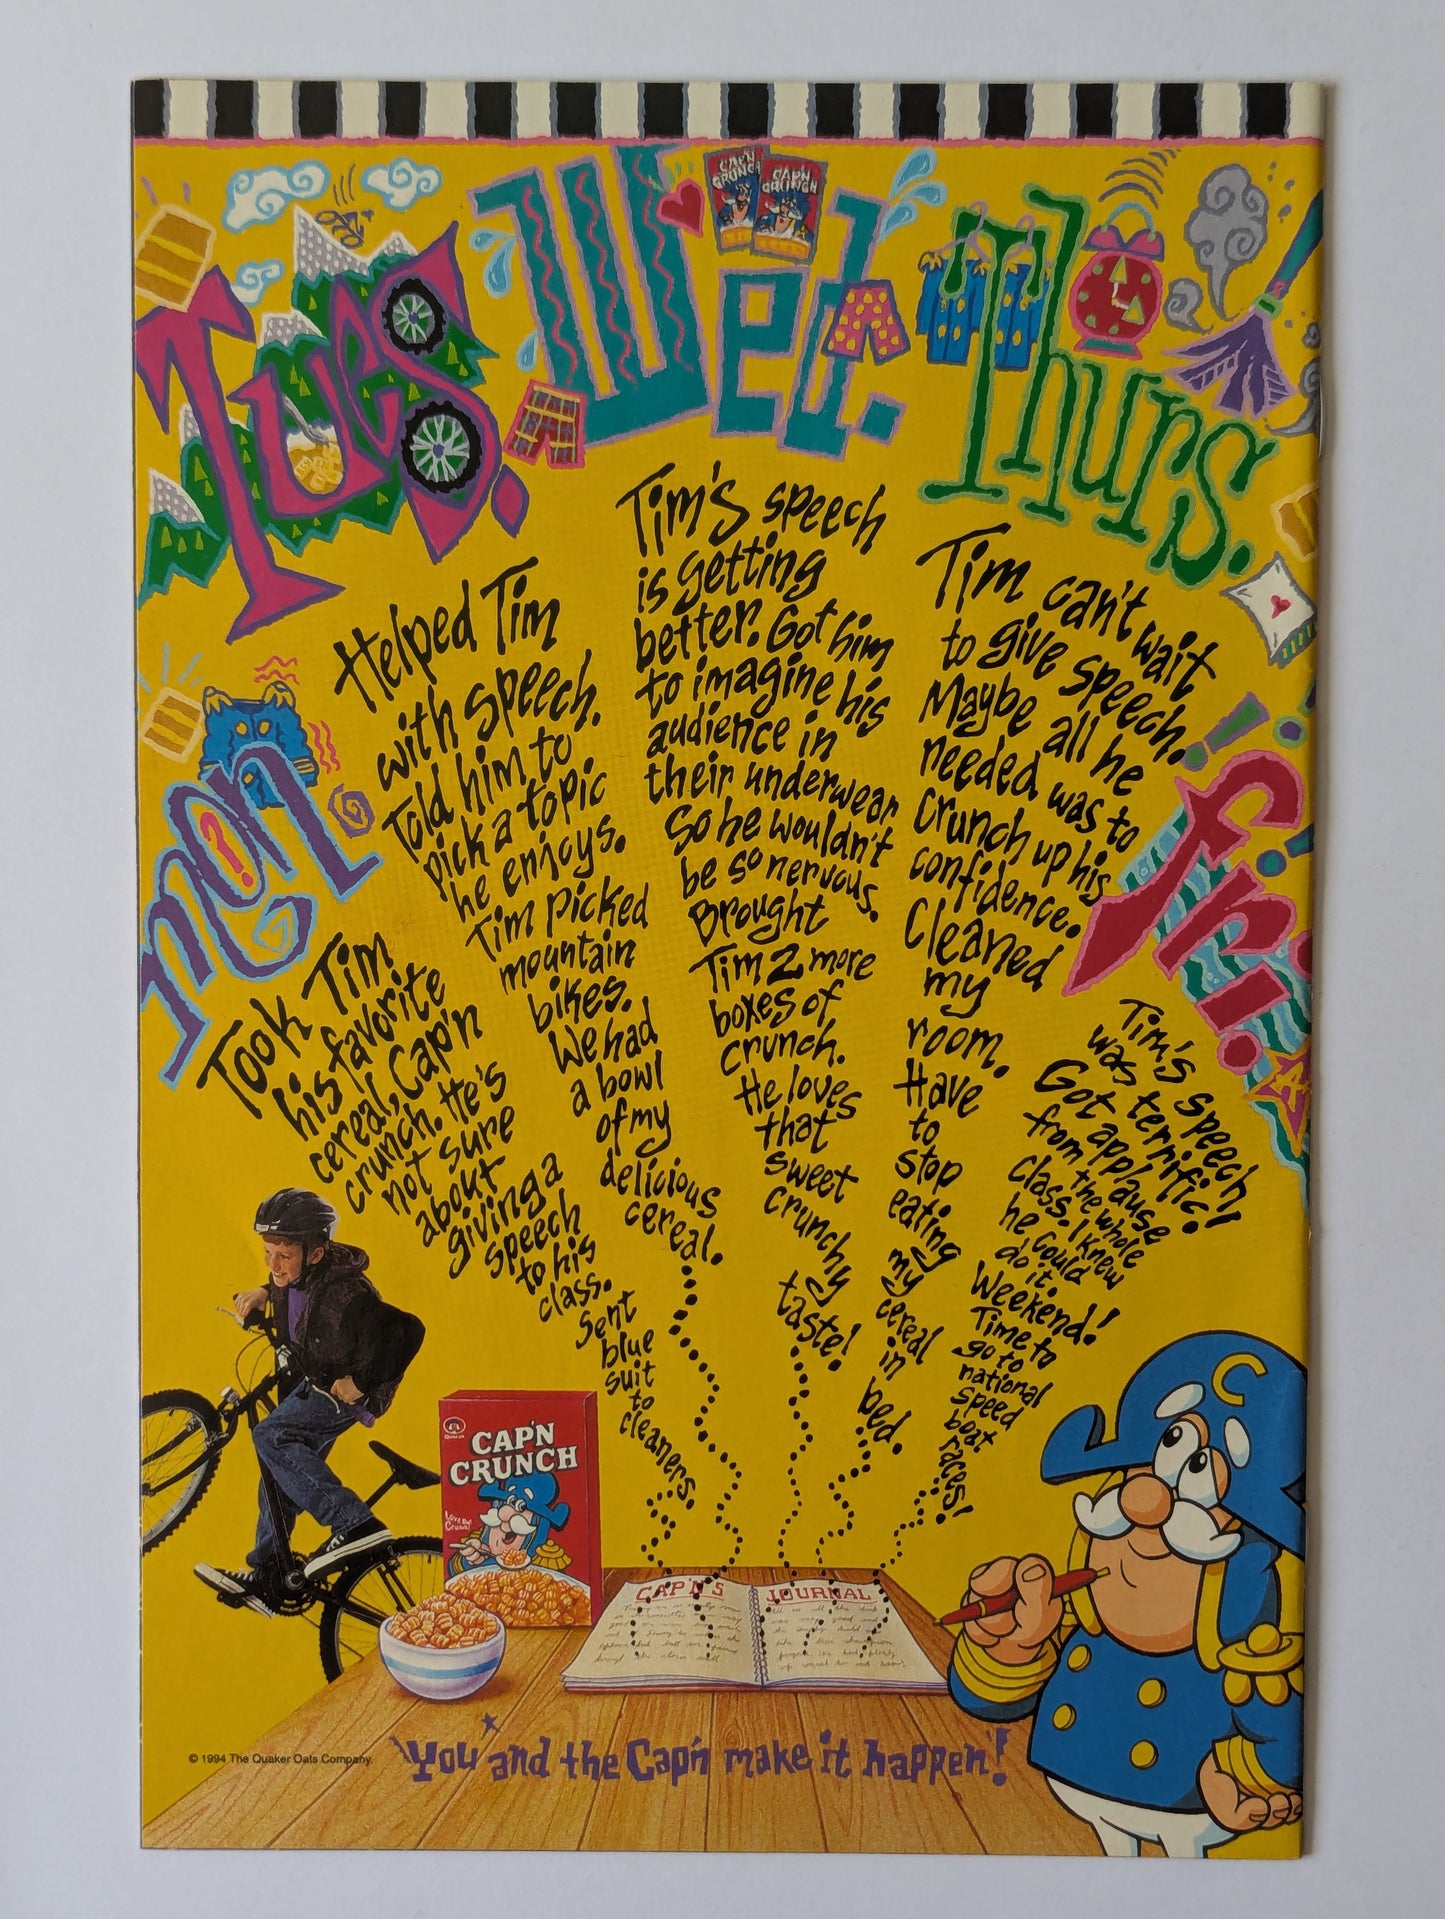 Mon
Took Tim
his favorite
cereal, Cap'n
crunch. He's
not sure
about
giving a
speech
to his
class.
Sent
blue
suit
to
cleaners.
Tues.
Helped Tim
with speech.
Told him to
pick a topic
he enjoys.
Tim picked
mountain
bikes.
We had
a bowl
of my
delicious
cereal.
Wed.
CAP'N
CRUNCH
CAP'N
CRUNCH
Tim's speech
is getting
better. Got him
to imagine his
audience in
their underwear
So he wouldn't
be so nervous.
Brought
Tim 2 more
boxes of
crunch.
He loves
that
sweet
crunchy
taste!
Thurs.
Tim can't wait
to give speech.
Maybe all he
needed was to
crunch up his
confidence.
Cleaned
my
room.
Have
to
stop
eating
my
cereal
in
bed.
fri.
Tim's speech
was terrific!
Got applause
from the whole
class. I knew
he could
do it.
Weekend!
Time to
go to
national
speed
boat
races!
CAP'N
CRUNCH
CAP'N'S JOURNAL
C
© 1994 The Quaker Oats Company.
"You and the Cap'n make it happen!"